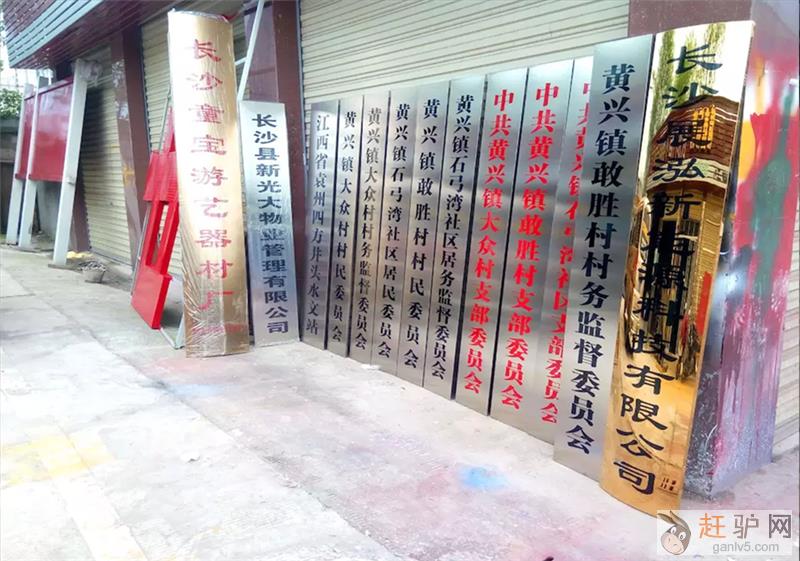 长沙童宝游艺器材厂
长沙县新光大物业管理有限公司
江西省袁州四方井头水文站
黄兴镇大众村村民委员会
黄兴镇大众村村务监督委员会
黄兴镇石弓湾社区居民委员会
黄兴镇敢胜村村民委员会
黄兴镇石弓湾社区居务监督委员会
中共黄兴镇大众村支部委员会
中共黄兴镇敢胜村支部委员会
中共黄兴镇石弓湾社区支部委员会
黄兴镇敢胜村村务监督委员会
长沙晨泓新能源科技有限公司
赶驴网
ganlv5.com